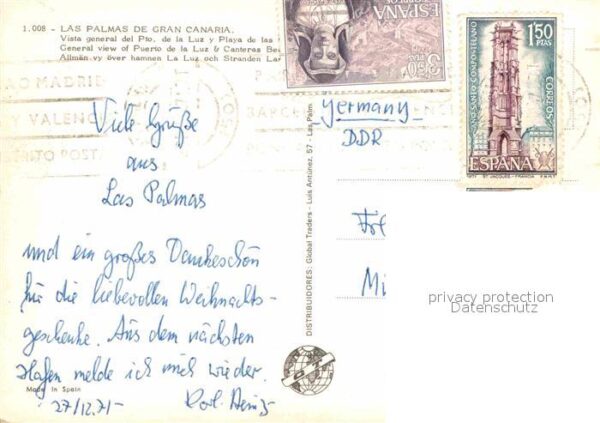 1.008 - LAS PALMAS DE GRAN CANARIA.
Vista general del Pto. de la Luz y Playa de las
General view of Puerto de la Luz & Canteras Bea
Allmän vy över hamnen La Luz och Stranden La
ESPAÑA
3,50 PTAS
1'50
PTAS
AÑO SANTO COMPOSTELANO
CORREOS
ESPAÑA
1971 ST JACQUES - FRANCIA F.N.M.T.
MADRID
Y VALENC
POST
Germany
DDR
Viele Grüße
aus
Las Palmas
und ein großes Dankeschön
für die liebevollen Weihnachts-
geschenke. Aus dem nächsten
Hafen melde ich mich wieder.
27/12.71 - Karl Heinz
DISTRIBUIDORES: Global Traders - Luis Antúnez, 57 - Las Palm
Made in Spain
Mi
privacy protection
Datenschutz